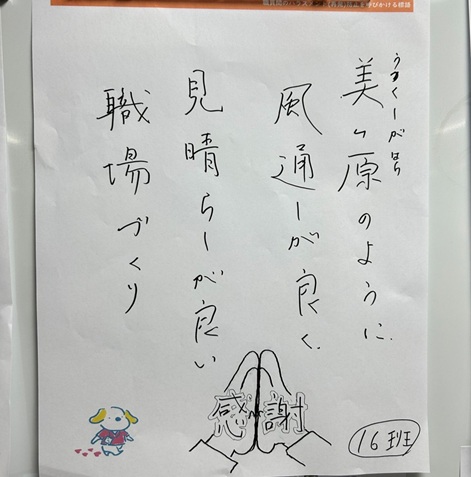 びかける標語
うつくしがはら
美ヶ原のように
風通しが良く、
見晴らしが良い
職場づくり
感謝
16班